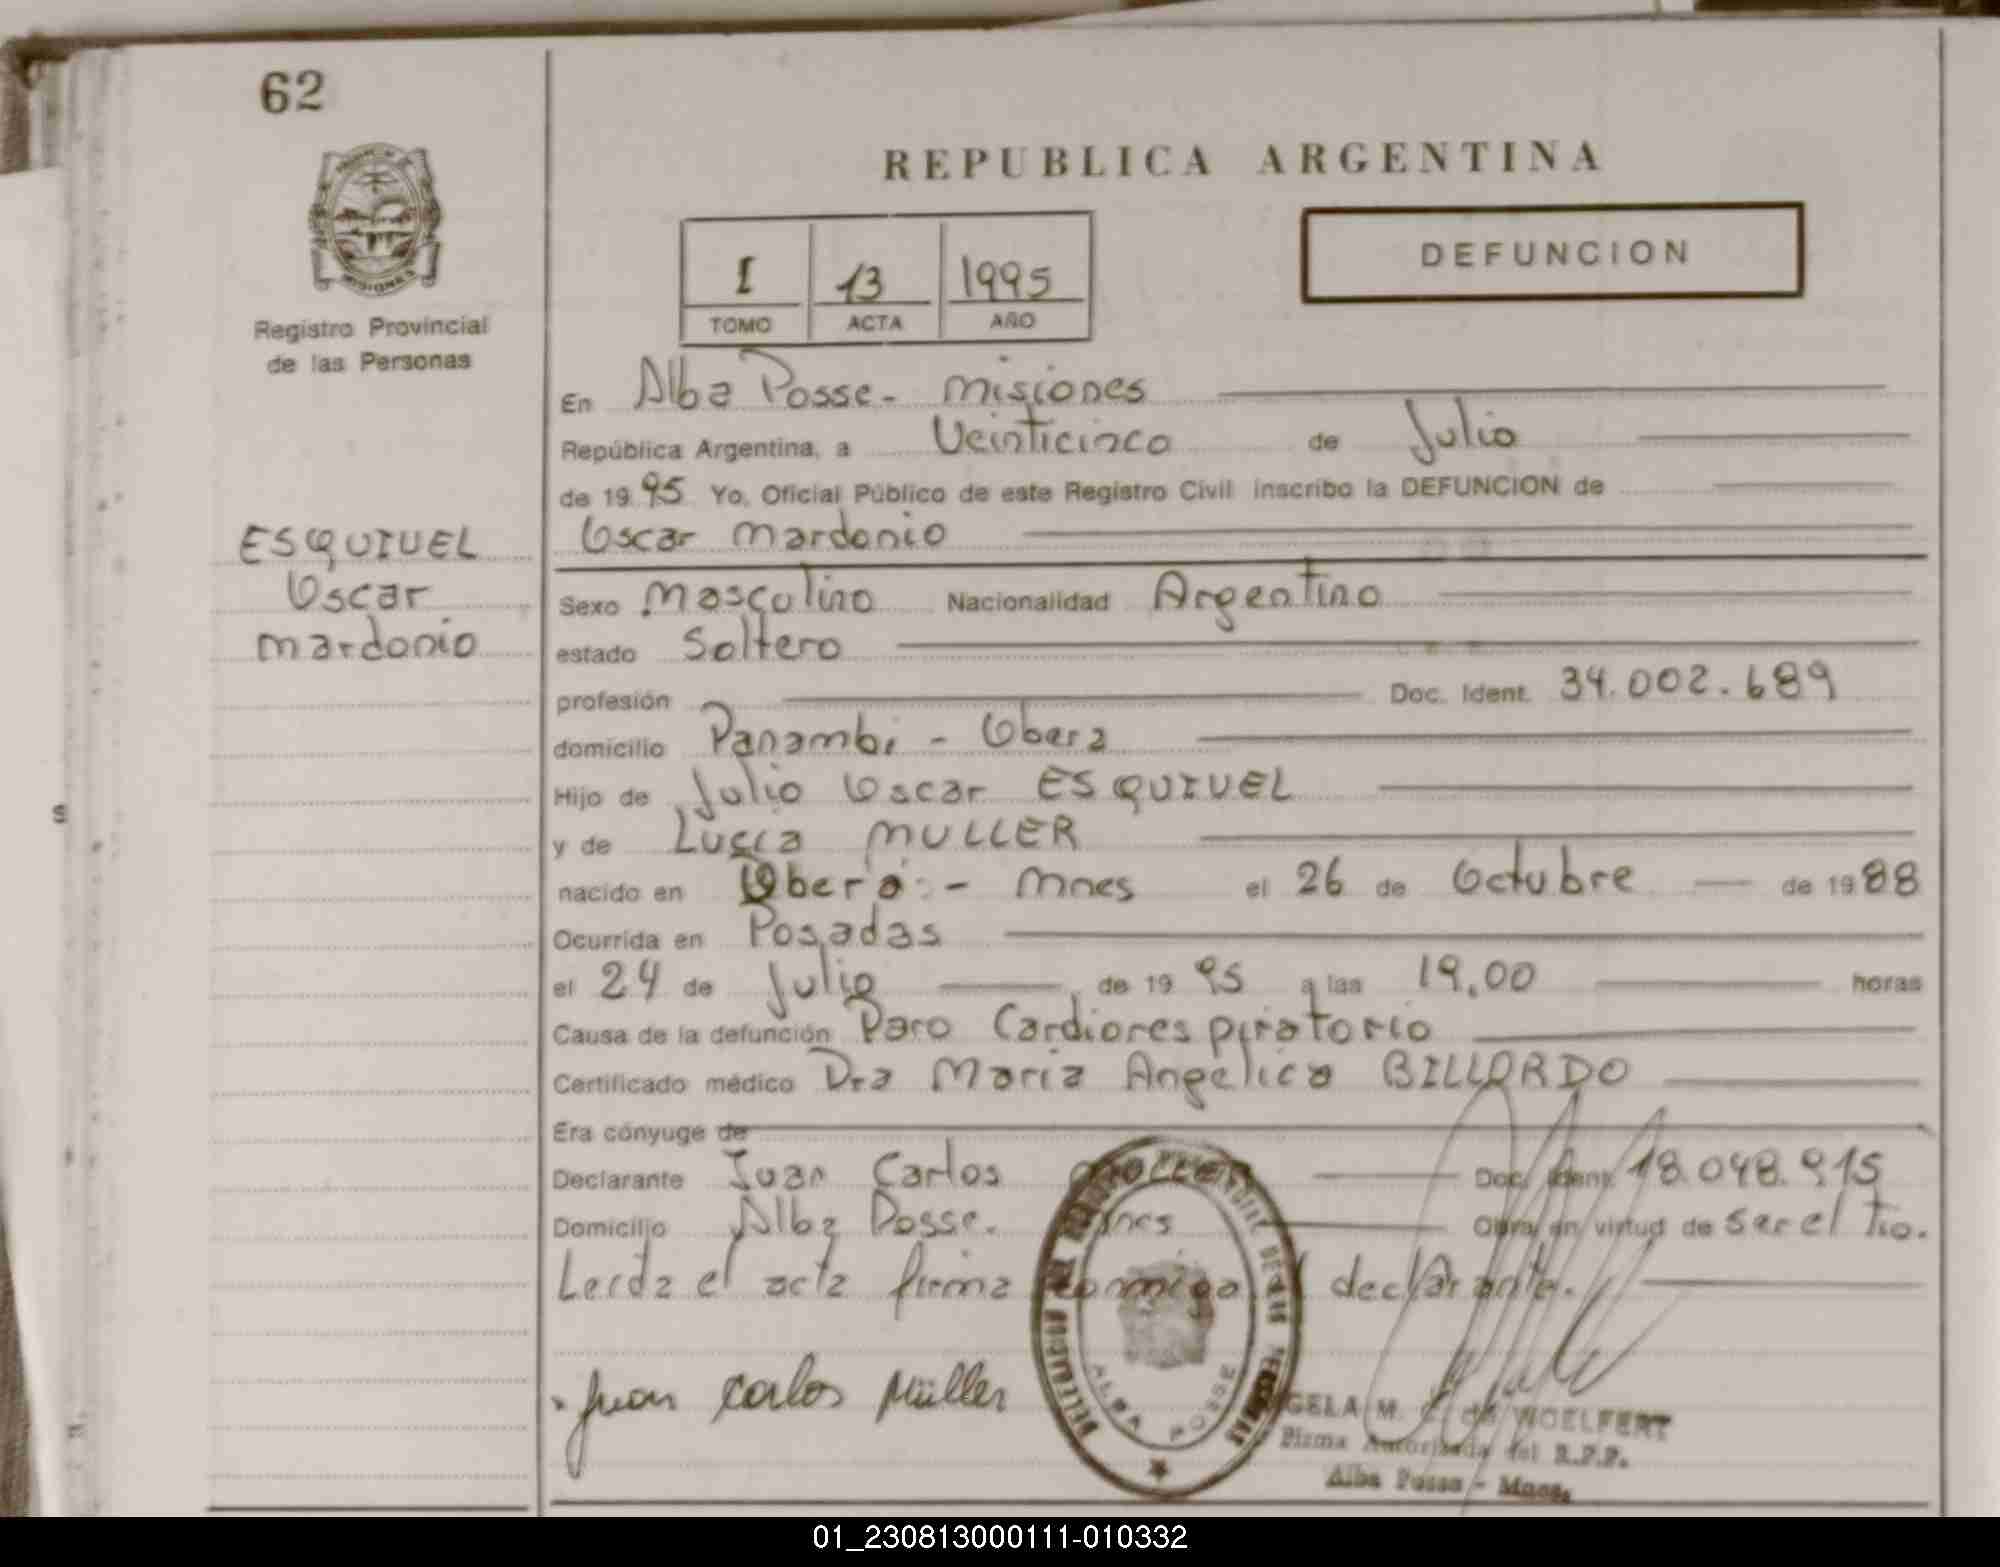 62
REPUBLICA ARGENTINA
DEFUNCION
I 13 1995
TOMO ACTA AÑO
Registro Provincial
de las Personas
En Alba Posse - Misiones
República Argentina, a Veinticinco de Julio
de 1995 Yo, Oficial Público de este Registro Civil inscribo la DEFUNCION de
ESQUIVEL
Oscar
Mardonio
Oscar Mardonio
Sexo Masculino Nacionalidad Argentino
estado Soltero
profesión Doc. Ident. 34.002.689
domicilio Panambi - Obera
Hijo de Julio Oscar ESQUIVEL
y de Lucia MULLER
nacido en Oberá - Mnes el 26 de Octubre de 1988
Ocurrida en Posadas
el 24 de Julio de 1995 a las 19,00 horas
Causa de la defunción Paro Cardiorespiratorio
Certificado médico Dra Maria Angelica BILLARDO
Era cónyuge de
Declarante Juan Carlos MULLER Doc. Ident. 18.048.915
Domicilio Alba Posse. Mnes Obra en virtud de ser el tio.
Leida el acta firma conmigo el declarante.
Juan Carlos Müller
ALBA POSSE
GELA M. de WOELFERT
Firma Autorizada del R.P.P.
Alba Posse - Mnes.
01_230813000111-010332